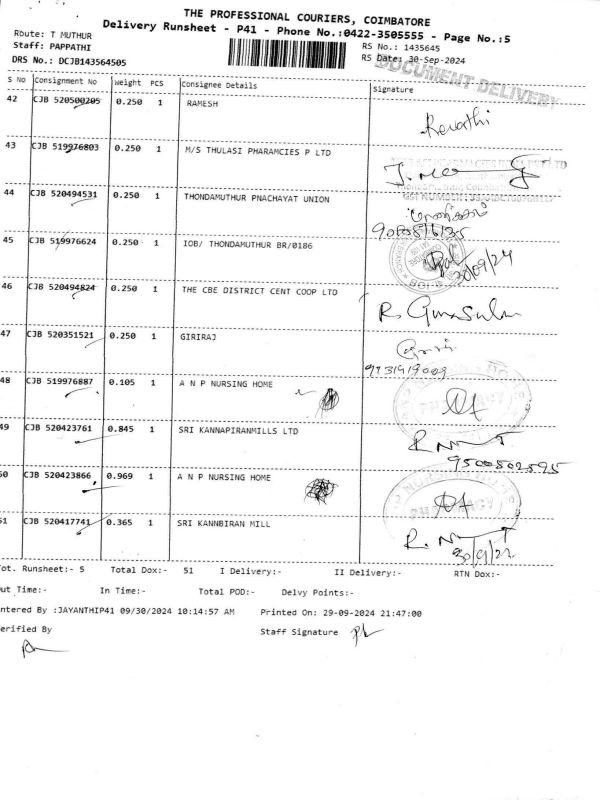 THE PROFESSIONAL COURIERS, COIMBATORE
Delivery Runsheet - P41 - Phone No.:0422-3505555 - Page No.:5
Route: T MUTHUR
Staff: PAPPATHI
RS No.: 1435645
DRS No.: DCJB143564505
RS Date: 30-Sep-2024
DOCUMENT DELIVERY
S No Consignment No Weight PCS Consignee Details Signature
42 CJB 520500205 0.250 1 RAMESH
Revathi
43 CJB 519976803 0.250 1 M/S THULASI PHARAMCIES P LTD
44 CJB 520494531 0.250 1 THONDAMUTHUR PNACHAYAT UNION
45 CJB 519976624 0.250 1 IOB/ THONDAMUTHUR BR/0186
46 CJB 520494824 0.250 1 THE CBE DISTRICT CENT COOP LTD
47 CJB 520351521 0.250 1 GIRIRAJ
48 CJB 519976887 0.105 1 A N P NURSING HOME
49 CJB 520423761 0.845 1 SRI KANNAPIRANMILLS LTD
9500502595
50 CJB 520423866 0.969 1 A N P NURSING HOME
51 CJB 520417741 0.365 1 SRI KANNBIRAN MILL
Tot. Runsheet:- 5 Total Dox:- 51 I Delivery:- II Delivery:- RTN Dox:-
Out Time:- In Time:- Total POD:- Delvy Points:-
Entered By :JAYANTHIP41 09/30/2024 10:14:57 AM Printed On: 29-09-2024 21:47:00
Verified By Staff Signature